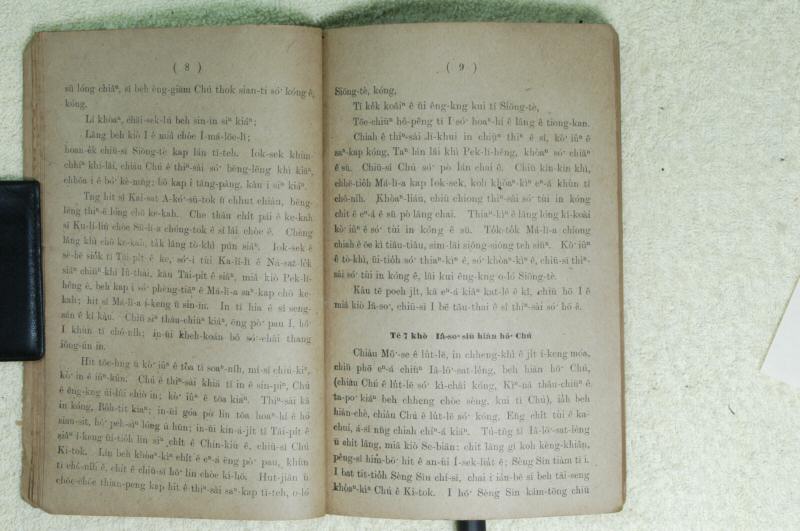 ( 8 )
sū lóng chiâⁿ, sī beh èng-giām Chú thok sian-ti só͘ kóng ê,
kóng.
Lí khòaⁿ, chāi-sek-lú beh sin-īn siⁿ kiáⁿ;
Lâng beh kiò I ê miâ chòe Í-má-lōe-lī;
hoan-e̍k chiū-sī Siōng-tè kap lán tī-teh. Iok-sek khùn-
chhíⁿ khí-lâi, chiàu Chú ê thiⁿ-sài só͘ bēng-lēng khì kiâⁿ,
chhōa i ê bó͘ kè-mn̂g; bô kap i tâng-pâng, kàu i siⁿ kiáⁿ.
Tng hit sî Kai-sat A-kó͘-sū-tok ū chhut chiàu, bēng-
lēng thiⁿ-ē lóng chō ke-kah. Che thâu chi̍t pái ê ke-kah
sī Ku-lí-liû chòe Sū-lī-a chóng-tok ê sî lâi chòe ê. Chèng
lâng khì chō ke-kah, ta̍k lâng tò-khì pún siâⁿ. Iok-sek ê
sè-hē sio̍k tī Tāi-pi̍t ê ke, só͘-í tùi Ka-lī-lī ê Ná-sat-le̍k
siâⁿ chiūⁿ khì Iû-thài, kàu Tāi-pi̍t ê siâⁿ, miâ kiò Pek-lī-
hêng ê, beh kap i só͘ phèng-tiāⁿ ê Má-lī-a saⁿ-kap chō ke-
kah; hit sî Má-lī-a í-keng ū sin-īn. In tī hia ê sî seng-
sán ê kî kàu. Chiū siⁿ thâu-chiūⁿ kiáⁿ, ēng pò͘ pau I, hō͘
I khùn tī chô-ni̍h; in-ūi kheh-koán bô só͘-chāi thang
iông-ún in.
Hit tōe-hng ū kò͘ iûⁿ ê tòa tī soaⁿ-ni̍h, mî-sî chiú-kiⁿ,
kò͘ in ê iûⁿ-kûn. Chú ê thiⁿ-sài khiā tī in ê sin-piⁿ, Chú
ê êng-kng ûi-liû chiò in; kò͘ iûⁿ ê tōa kiaⁿ. Thiⁿ-sài kā
in kóng, Bo̍h-tit kiaⁿ; in-ūi góa pò lín tōa hoaⁿ-hí ê hó
siau-sit, hō͘ peh-sìⁿ lóng ū hūn; in-ūi kin-á-ji̍t tī Tāi-pi̍t ê
siâⁿ í-keng ūi-tio̍h lín siⁿ chi̍t ê Chín-kiù ê, chiū-sī Chú
Ki-tok. Lín beh khòaⁿ-kìⁿ chi̍t ê eⁿ-á ēng pò͘ pau, khùn
tī chô-ni̍h ê, chit ê chiū-sī hō͘ lín chòe kì-hō. Hut-jiân ū
chōe-chōe thian-peng kap hit ê thiⁿ-sài saⁿ-kap tī-teh, o-ló
( 9 )
Siōng-tè, kóng,
Tī ke̍k koâiⁿ ê ūi êng-kng kui tī Siōng-tè,
Tōe-chiūⁿ hô-pêng tī I só͘ hoaⁿ-hí ê lâng ê tiong-kan.
Chiah ê thiⁿ-sài lī-khui in chiūⁿ thiⁿ ê sî, kò͘ iûⁿ ê
saⁿ-kap kóng, Taⁿ lán lâi khì Pek-lī-hêng, khòaⁿ só͘ chiâⁿ
ê sū. Chiū-sī Chú só͘ pò lán chai ê. Chiū kín-kín khì,
chhē-tio̍h Má-lī-a kap Iok-sek, koh khòaⁿ-kìⁿ eⁿ-á khùn tī
chô-ni̍h. Khòaⁿ-liáu, chiū chiong thiⁿ-sài só͘ tùi in kóng
chit ê eⁿ-á ê sū pò lâng chai. Thiaⁿ-kìⁿ ê lâng lóng kî-koài
kò͘ iûⁿ ê só͘ tùi in kóng ê sū. To̍k-to̍k Má-lī-a chiong
chiah ê ōe kì tiâu-tiâu, sim-lāi siōng-siông teh siūⁿ. Kò͘ iûⁿ
ê tò-khì, ūi-tio̍h só͘ thiaⁿ-kìⁿ ê, só͘ khòaⁿ-kìⁿ ê, chiū-sī thiⁿ-
sài só͘ tùi in kóng ê, lâi kui êng-kng o-ló Siōng-tè.
Kàu tē poeh ji̍t, kā eⁿ-á kiâⁿ kat-lé ê kî, chiū hō I ê
miâ kiò Iâ-so͘, chiū-sī I bē tâu-thai ê sî thiⁿ-sài só͘ hō ê.
Tē 7 khò Iâ-so͘ siū hiàn hō͘ Chú
Chiàu Mô͘-se ê lu̍t-lē, in chheng-khì ê ji̍t í-keng móa,
chiū phō eⁿ-á chiūⁿ Iâ-lō͘-sat-léng, beh hiàn hō͘ Chú,
(chiàu Chú ê lu̍t-lē só͘ kì-chāi kóng, Kìⁿ-nā thâu-chiūⁿ ê
ta-po͘ kiáⁿ beh chheng chòe sèng, kui tī Chú), ia̍h beh
hiàn-chè, chiàu Chú ê lu̍t-lē só͘ kóng, Ēng chi̍t tùi ê ka-
chui, á-sī nn̄g chiah chíⁿ-á kiáⁿ. Tú-tn̄g tī Iâ-lō͘-sat-léng
ū chi̍t lâng, miâ kiò Se-biān: chit lâng gī koh kèng-khiân,
pêng-sî him-bō͘ hit ê an-ùi Í-sek-lia̍t ê; Sèng Sîn tiàm tī i.
I bat tit-tio̍h Sèng Sîn chí-sī, chai i iáu-bē sí beh tāi-seng
khòaⁿ-kìⁿ Chú ê Ki-tok. I hō͘ Sèng Sîn kám-tōng chiū